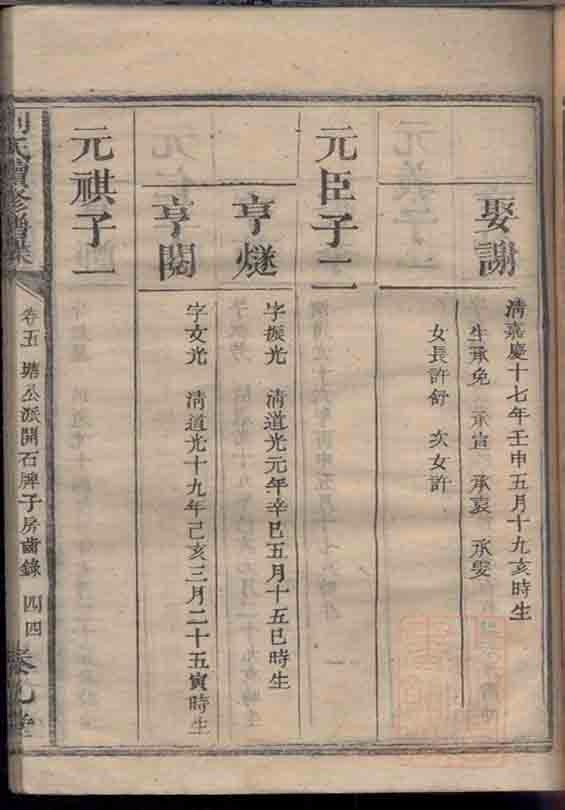 娶謝
清嘉慶十七年壬申五月十九亥時生
生承免 承宣 承裒 承叟
女長許舒 次女許
元臣子二
亨燧
字振光 清道光元年辛巳五月十五巳時生
亨閱
字文光 清道光十九年己亥三月二十五寅時生
元祺子一
氏續修譜牒
卷五 公派開石牌子房齒錄 四四